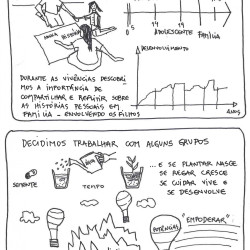 0 5 14 19
ADOLESCENTE FAMÍLIA
DESENVOLVIMENTO
MINHA HISTÓRIA
DURANTE AS VIVÊNCIAS DESCOBRI
MOS A IMPORTÂNCIA DE
COMPARTILHAR E REFLETIR SOBRE
AS HISTÓRIAS PESSOAIS EM
FAMÍLIA - ENVOLVENDO OS FILHOS
DECIDIMOS TRABALHAR COM ALGUNS GRUPOS
ÁGUA
... E SE PLANTAR NASCE
SE REGAR CRESCE
SE CUIDAR VIVE E
SE DESENVOLVE
SEMENTE
TEMPO
"EMPODERAR"
POTÊNCIAS